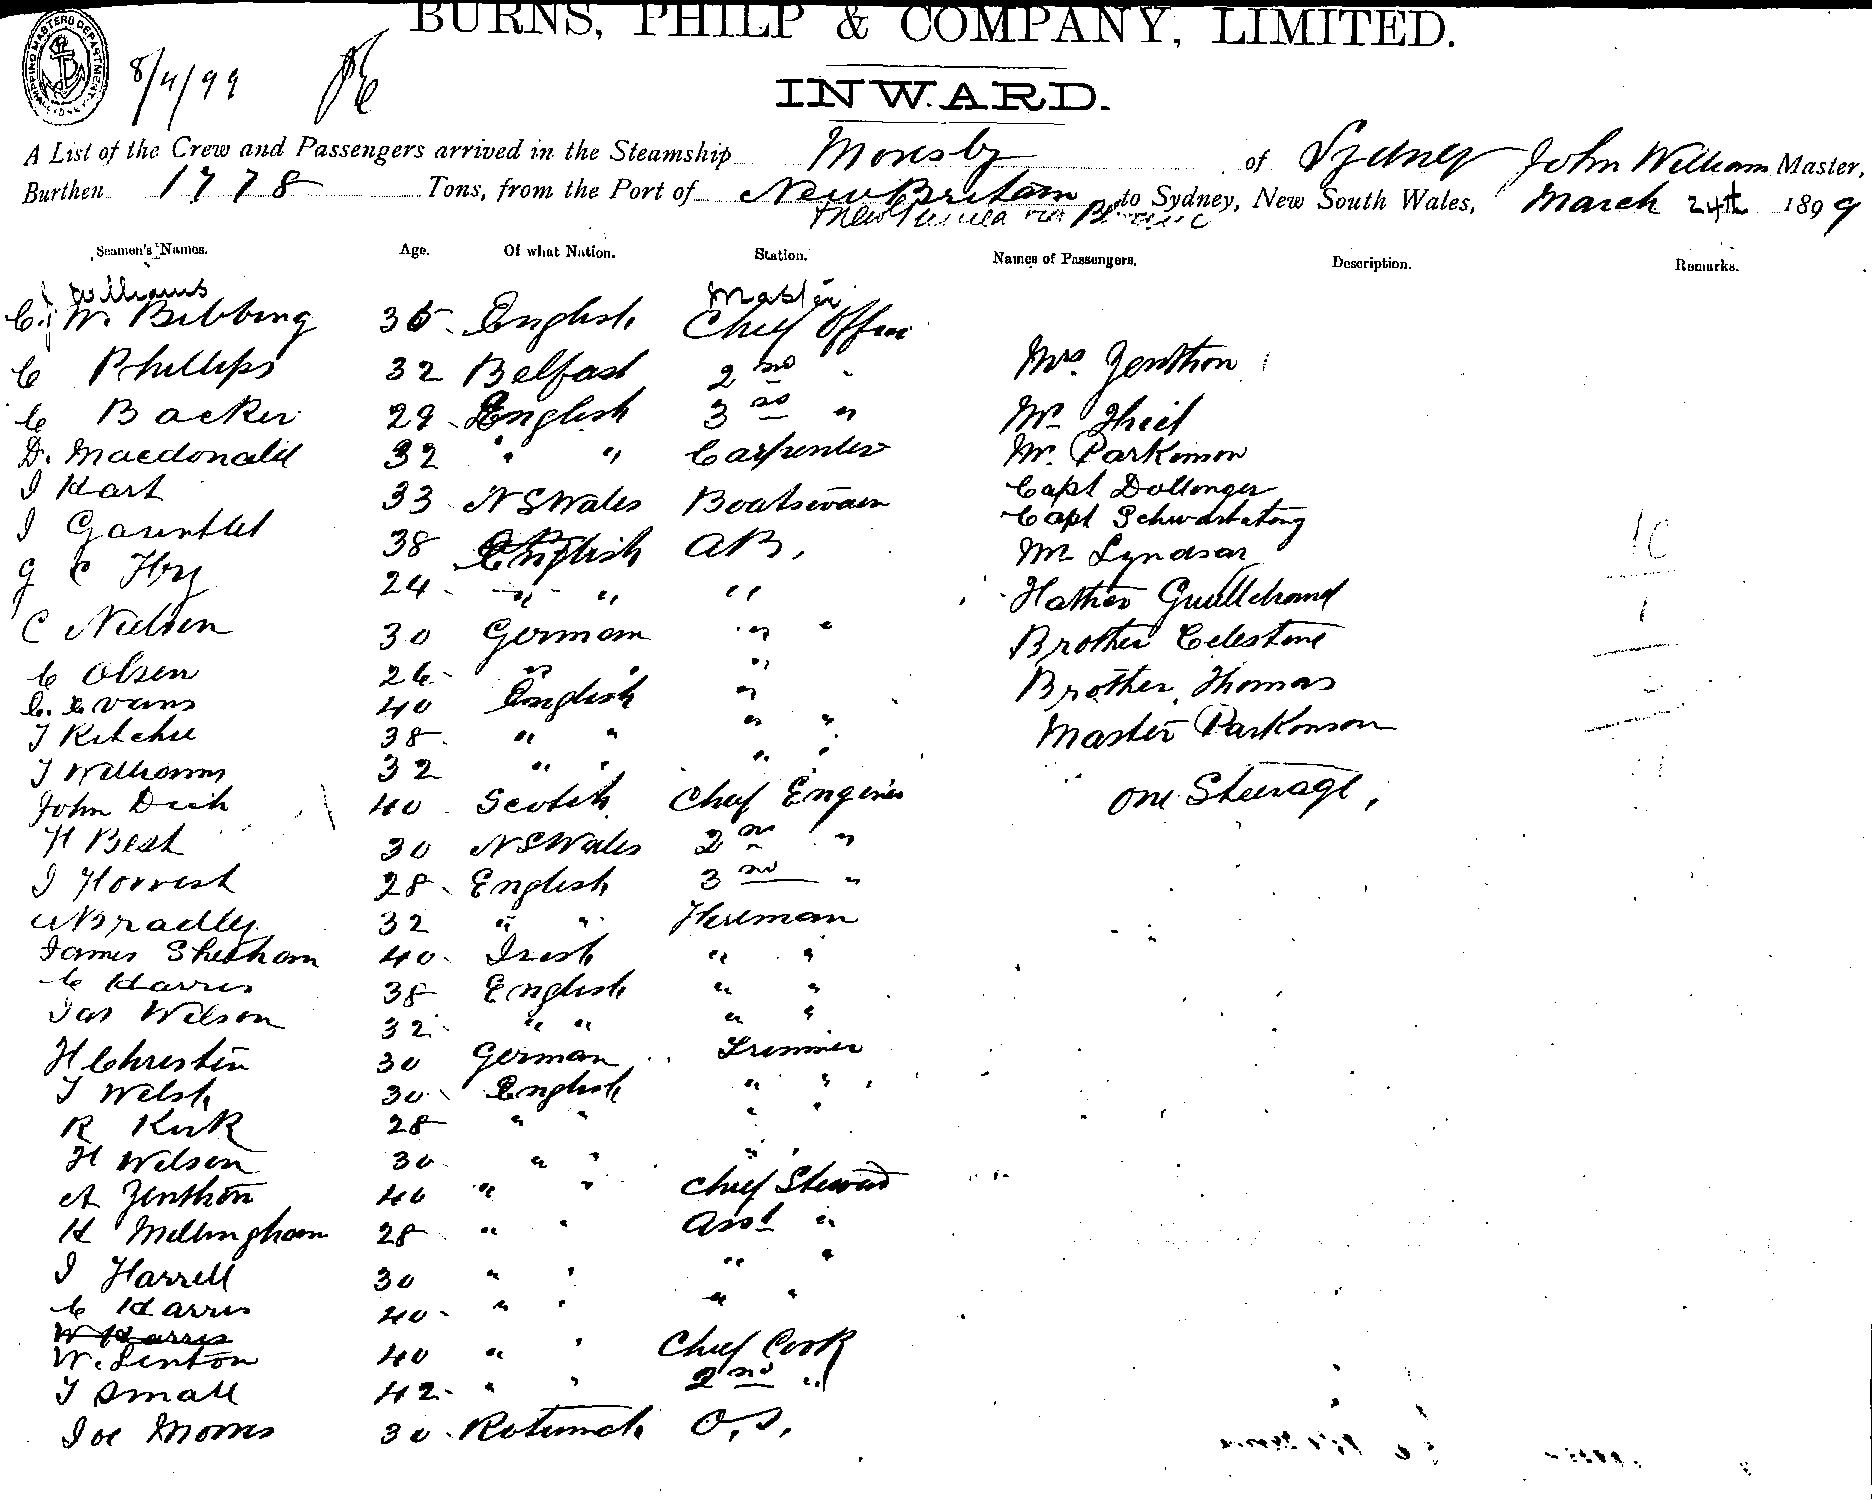 BURNS, PHILP & COMPANY, LIMITED.
INWARD.
8/4/99
A List of the Crew and Passengers arrived in the Steamship Moresby of Sydney John William Master,
Burthen 1778 Tons, from the Port of New Britain to Sydney, New South Wales, March 24th 1899
Seamen's Names. Age. Of what Nation. Station. Names of Passengers. Description. Remarks.
J Williams Master
W. Bibbing 36 English Chief Officer
C Phillips 32 Belfast 2nd " Mrs. Zenthon
C Backer 29 English 3rd " Mr Theil
D. Macdonald 32 " " Carpenter Mr. Parkinson
J Hart 33 N S Wales Boatswain Capt Dollonger
J Gauntlet 38 English AB. Capt
24 " " " Mr Lyndsay
C Nielson 30 German " " Father
C Olsen 26 " " " Brother Celestine
C. Evans 40 English " Brother Thomas
T Ritchie 38 " " " " Master Parkinson
T Williams 32 " " " "
John Dick 40 Scotch Chief Engineer one Steerage,
H Best 30 N S Wales 2nd "
J Forrest 28 English 3rd "
Bradley 32 " " Fireman
James Sheehan 40 Irish " "
C Harris 38 English " "
Jas Wilson 32 " " " "
H Christin 30 German Trimmer
T Welsh 30 English " "
R Kirk 28 " " " "
H Wilson 30 " " " "
A Zenthon 40 " " Chief Steward
H Millingham 28 " " Asst "
J Harrell 30 " " " "
C Harris 40 " " " "
W Harris
W. Linton 40 " " Chief Cook
T Small 42 " " 2nd "
Joe Morris 30 Rotumah O.S.